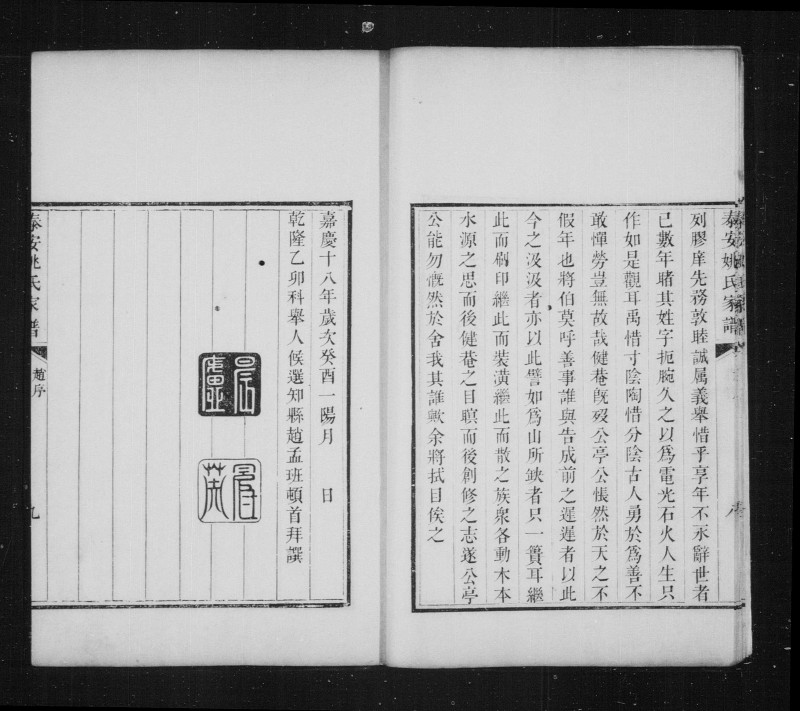 泰安姚氏家譜
列膠庠先務敦睦誠属義舉惜乎享年不永辭世者
已數年睹其姓字扼腕久之以爲電光石火人生只
作如是觀耳禹惜寸陰陶惜分陰古人勇於爲善不
敢憚勞豈無故哉健菴旣歿公亭公悵然於天之不
假年也將伯莫呼善事誰與告成前之遲遲者以此
今之汲汲者亦以此譬如爲山所缺者只一簣耳繼
此而刷印繼此而装潢繼此而散之族衆各動木本
水源之思而後健菴之目瞑而後創修之志遂公亭
公能勿慨然於舍我其誰歟余將拭目俟之
嘉慶十八年歲次癸酉一陽月 日
乾隆乙卯科舉人候選知縣趙孟班頓首拜譔
泰安姚氏家譜
趙序
九